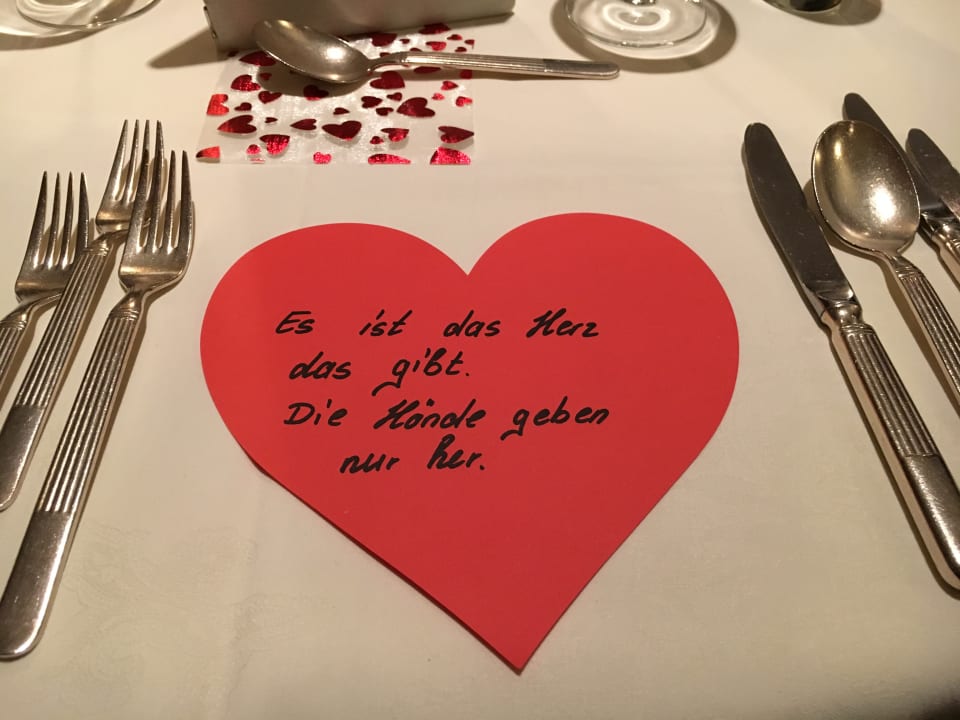 Es ist das Herz
das gibt.
Die Hände geben
nur her.